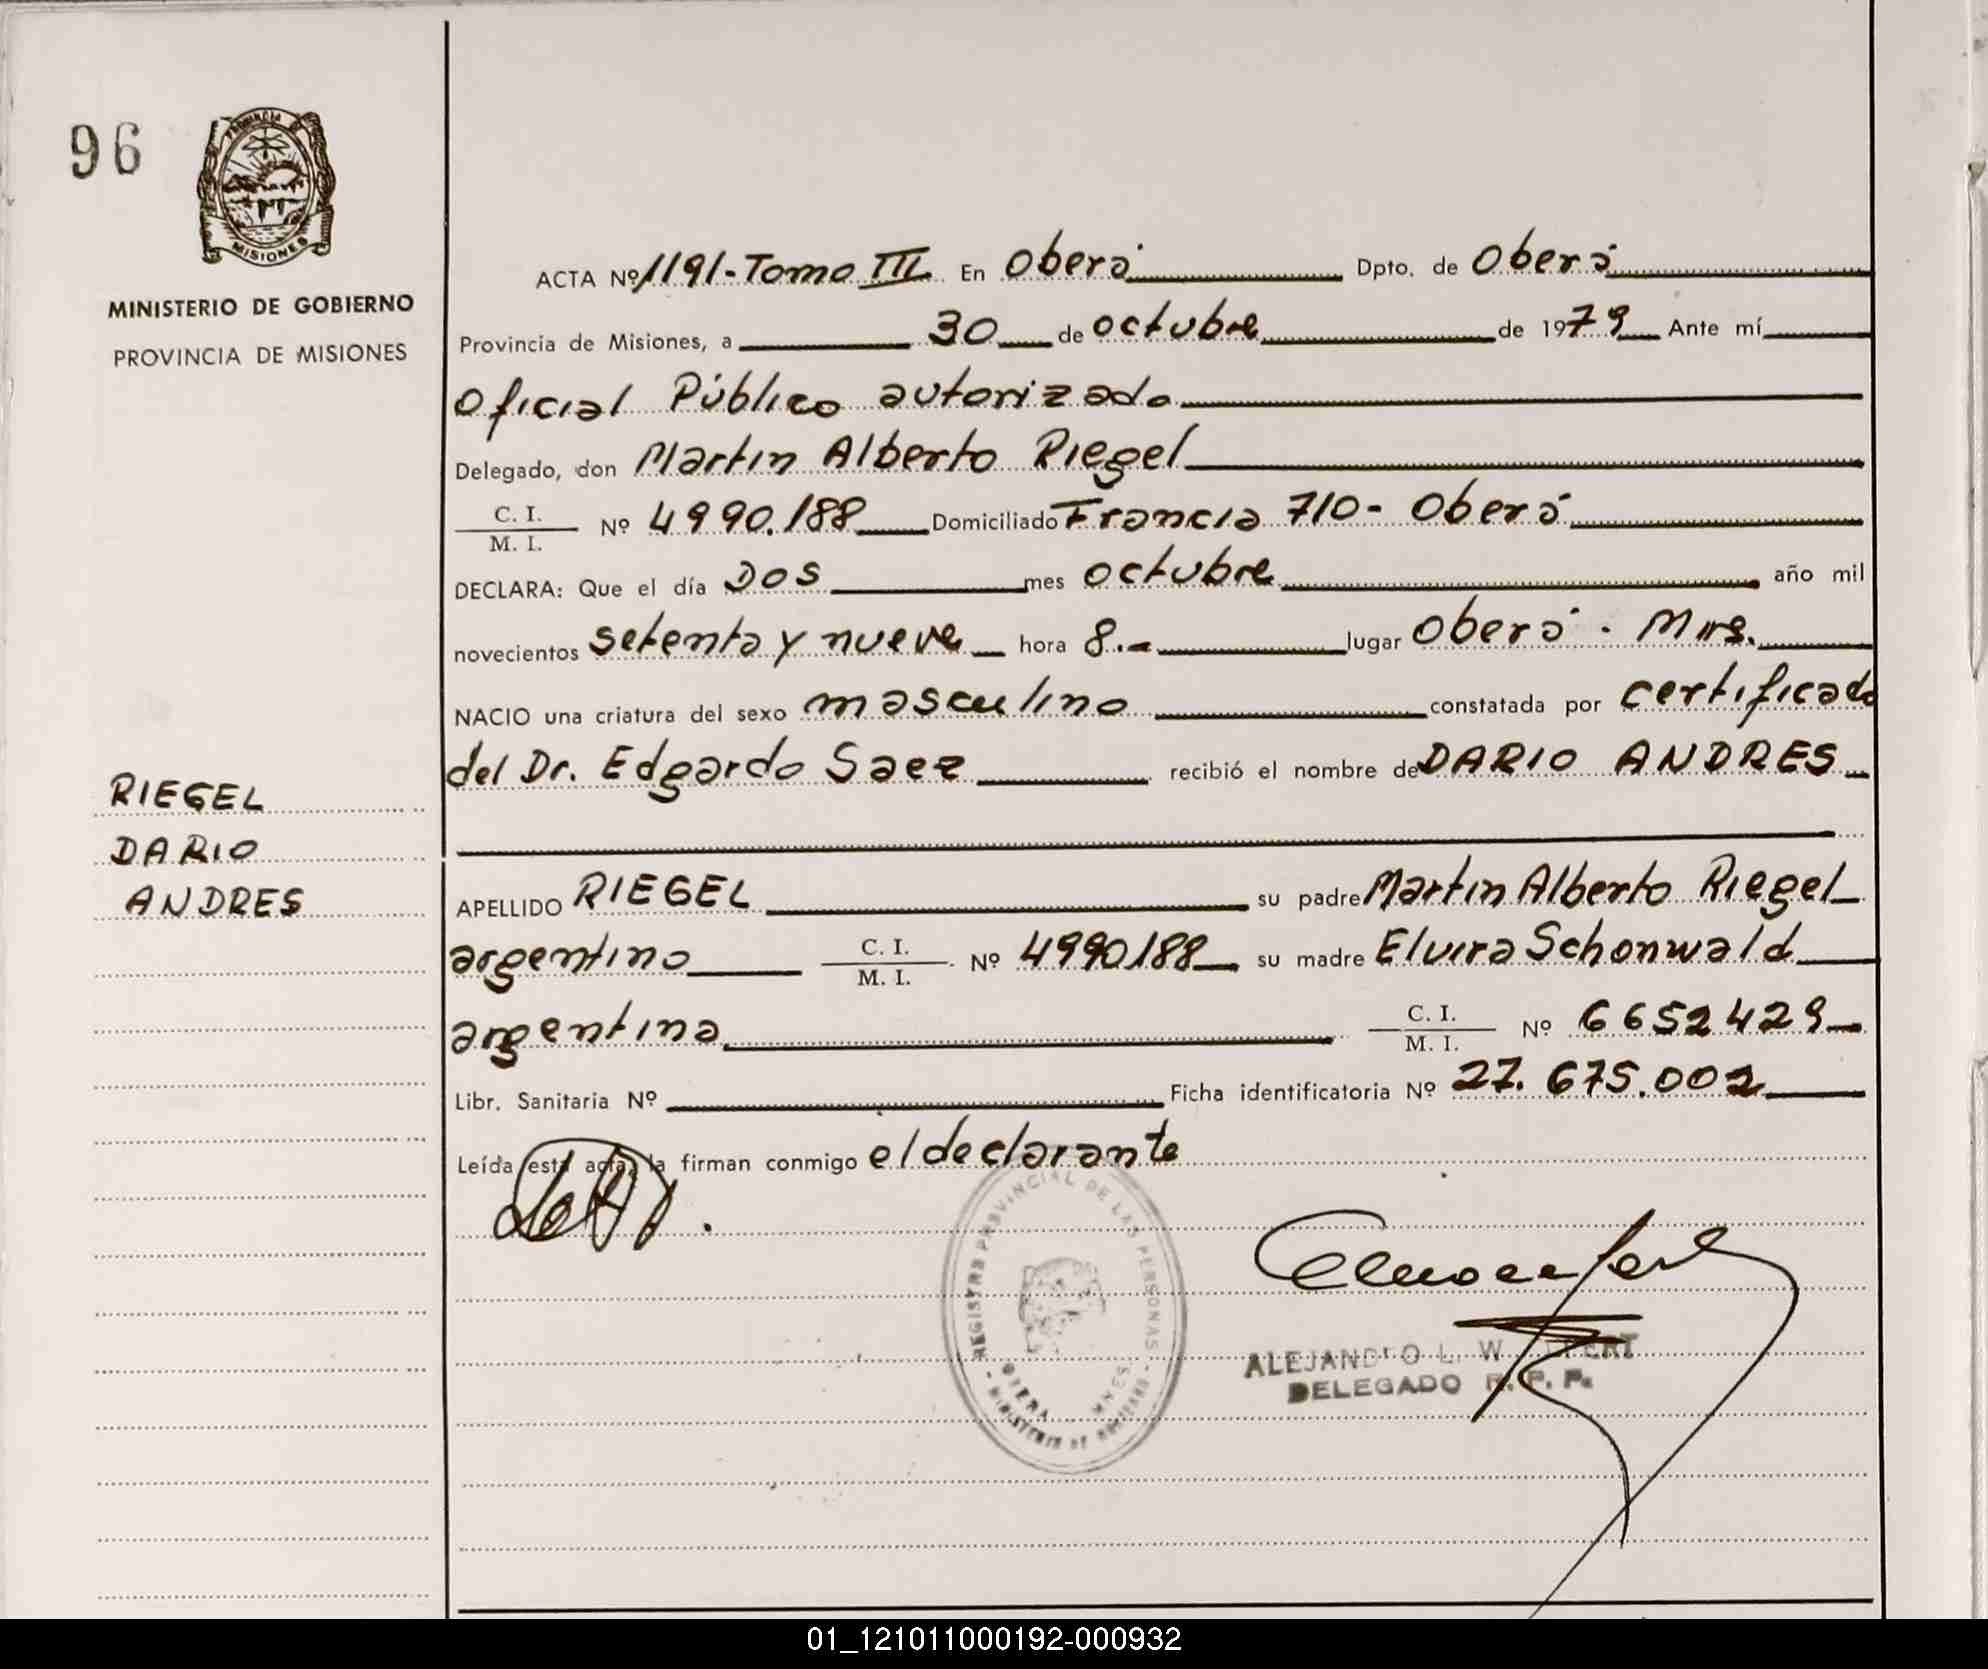 96
PROVINCIA DE
MISIONES
MINISTERIO DE GOBIERNO
PROVINCIA DE MISIONES
ACTA Nº 1191-Tomo III En Oberá Dpto. de Oberá
Provincia de Misiones, a 30 de octubre de 1979 Ante mí
Oficial Público autorizado
Delegado, don Martin Alberto Riegel
C. I.
M. I. Nº 4990.188 Domiciliado Francia 710- Oberá
DECLARA: Que el día Dos mes octubre año mil
novecientos setenta y nueve hora 8.- lugar Oberá. Mns.
NACIO una criatura del sexo masculino constatada por certificado
del Dr. Edgardo Saez recibió el nombre de DARIO ANDRES
RIEGEL
DARIO
ANDRES
APELLIDO RIEGEL su padre Martin Alberto Riegel
argentino C. I.
M. I. Nº 4990188 su madre Elvira Schonwald
argentina C. I.
M. I. Nº 6652429
Libr. Sanitaria Nº Ficha identificatoria Nº 27.675.002
Leída esta acta, la firman conmigo el declarante
REGISTRO PROVINCIAL DE LAS PERSONAS
OBERA MNES.
MINISTERIO DE GOBIERNO
ALEJANDRO L.
DELEGADO R. P. P.
01_121011000192-000932